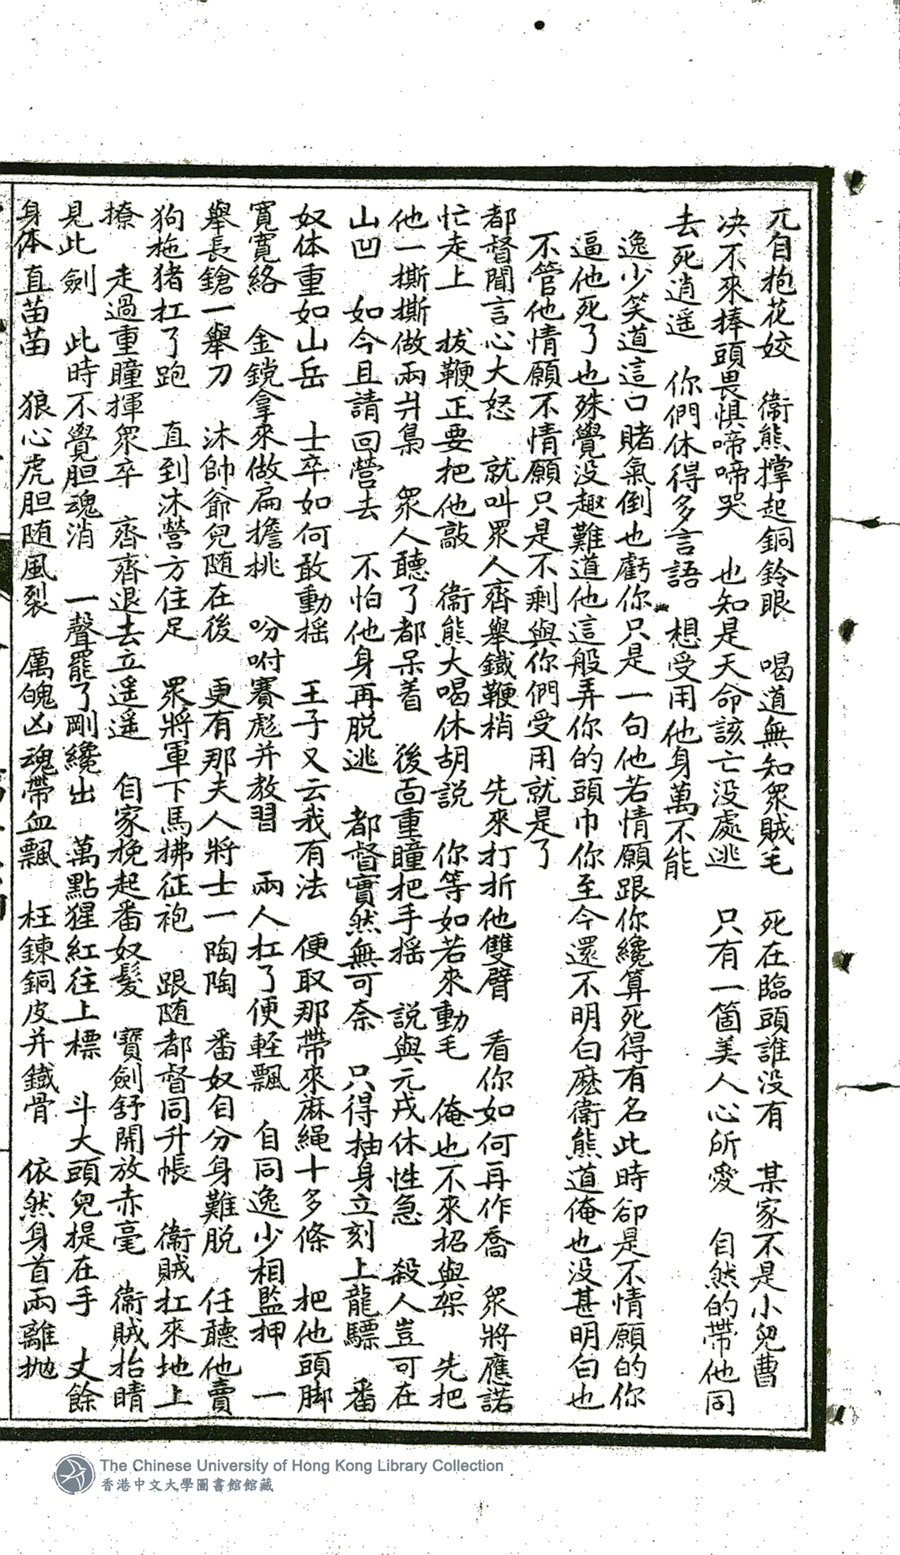 兀自抱花姣　衛熊撑起銅鈴眼　喝道無知衆賊毛　死在臨頭誰没有　某家不是小兒曹
决不來捧頭畏惧啼啼哭　也知是天命該亡没處逃　只有一箇美人心所愛　自然的帶他同
去死逍遥　你們休得多言語　想受用他身萬不能
逸少笑道這口賭氣倒也虧你只是一句他若情願跟你纔算死得有名此時卻是不情願的你
逼他死了也殊覺没趣難道他這般弄你的頭巾你至今還不明白麽衛熊道俺也没甚明白也
不管他情願不情願只是不剩與你們受用就是了
都督聞言心大怒　就叫眾人齊舉鐵鞭梢　先來打折他雙臂　看你如何再作喬　衆將應諾
忙走上　拔鞭正要把他敲　衛熊大喝休胡説　你等如若來動毛　俺也不來招與架　先把
他一撕撕做兩爿梟　衆人聽了都呆着　後面重瞳把手摇　説與元戎休性急　殺人豈可在
山凹　如今且請回營去　不怕他身再脱逃　都督實然無可奈　只得抽身立刻上龍驃　番
奴体重如山岳　士卒如何敢動摇　王子又云我有法　便取那帶來麻繩十多條　把他頭脚
寛寛絡　金鎲拿來做扁擔桃　吩咐賽彪并教習　兩人扛了便輕飄　自同逸少相監押　一
舉長鎗一舉刀　沐帥爺兒随在後　更有那夫人將士一陶陶　番奴自分身難脱　任聽他賣
狗拖猪扛了跑　直到沐營方住足　眾將軍下馬拂征袍　跟随都督同升帳　衛賊扛來地上
撩　走過重瞳揮衆卒　齊齊退去立遥遥　自家挽起番奴髮　寶劍舒開放赤毫　衛賊抬睛
見此劍　此時不覺胆魂消　一聲罷了剛纔出　萬點猩紅往上標　斗大頭兒提在手　丈餘
身体直苗苗　狼心虎胆随風裂　厲魄凶魂帶血飄　枉鍊銅皮并鐵骨　依然身首兩離抛
The Chinese University of Hong Kong Library Collection
香港中文大學圖書館館藏